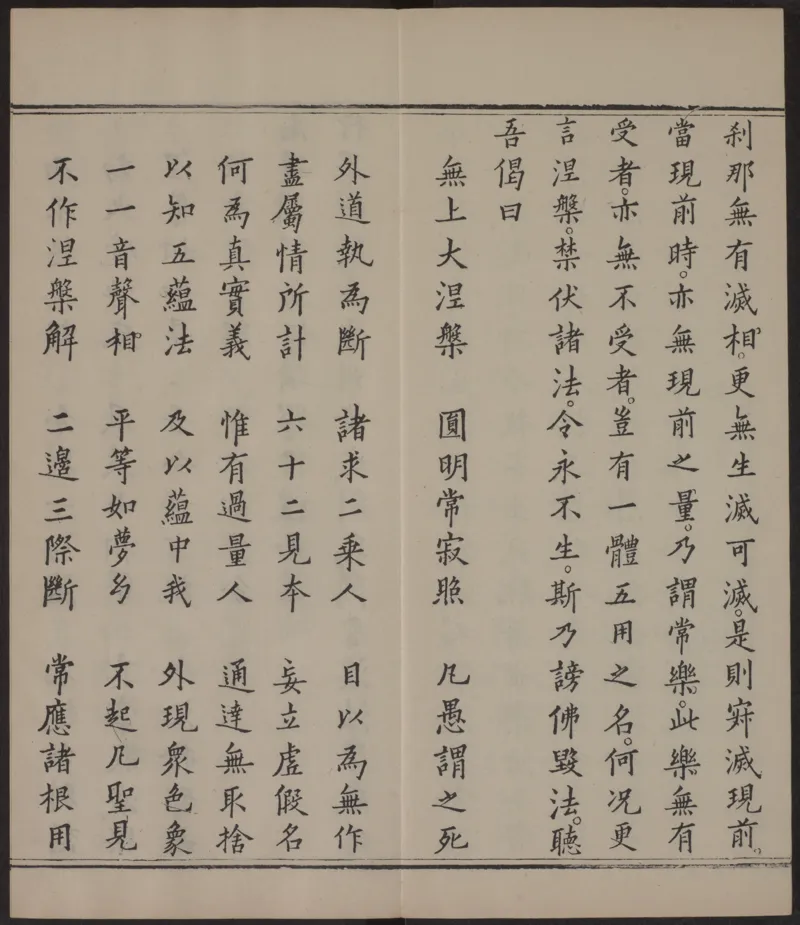 刹那無有滅相。更無生滅可滅。是則寂滅現前。
當現前時。亦無現前之量。乃謂常樂。此樂無有
受者。亦無不受者。豈有一體五用之名。何况更
言涅槃。禁伏諸法。令永不生。斯乃謗佛毀法。聽
吾偈曰
無上大涅槃　圓明常寂照　凡愚謂之死
外道執為斷　諸求二乗人　目以為無作
盡屬情所計　六十二見本　妄立虚假名
何為真實義　惟有過量人　通達無取捨
以知五蘊法　及以蘊中我　外現衆色象
一一音聲相　平等如夢幻　不起凡聖見
不作涅槃解　二邊三際斷　常應諸根用